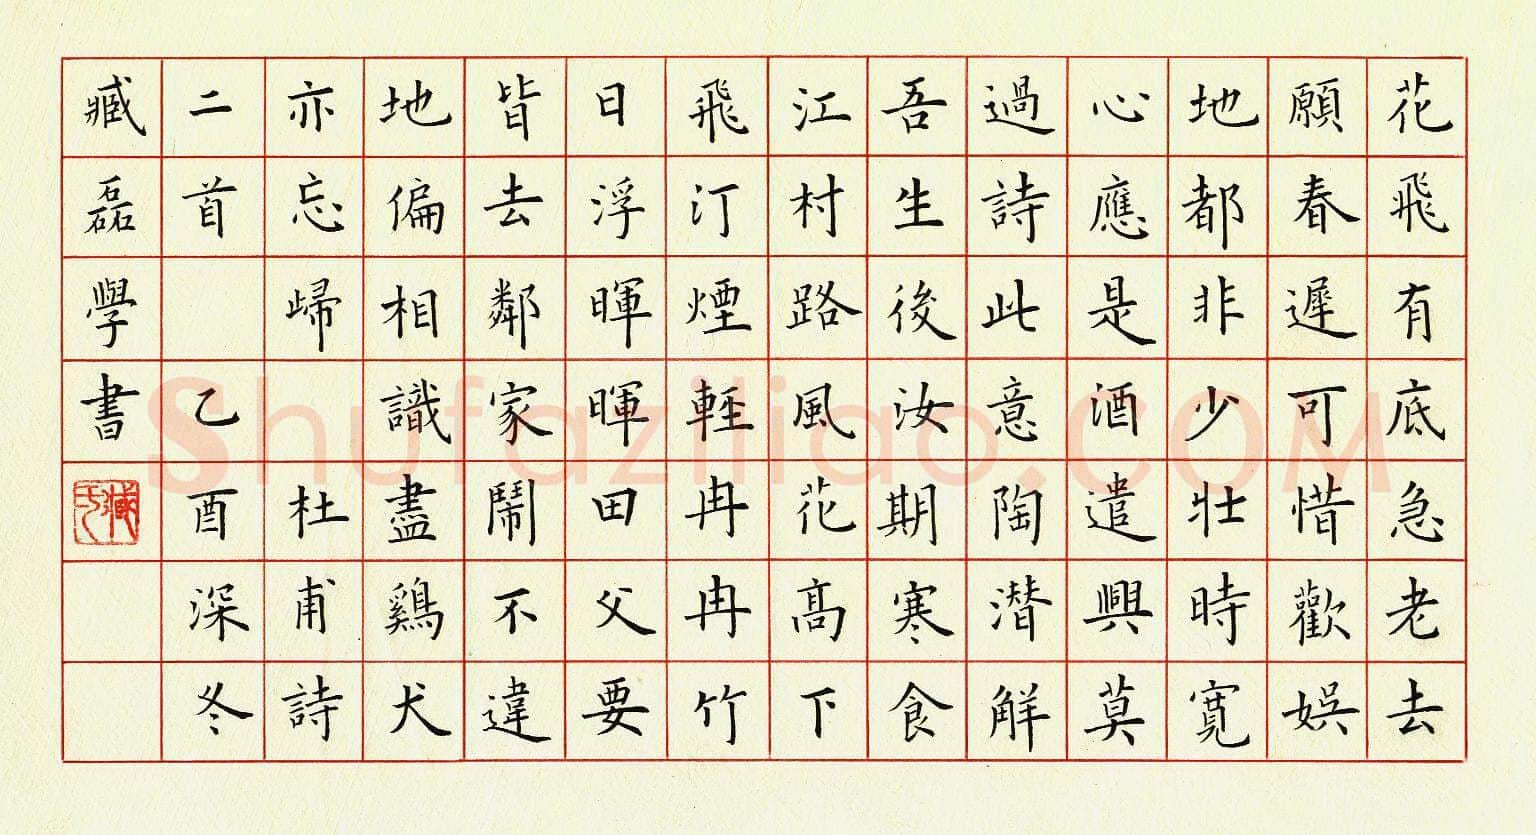 花飛有底急老去
願春遲可惜歡娛
地都非少壯時寬
心應是酒遣興莫
過詩此意陶潛解
吾生後汝期寒食
江村路風花高下
飛汀煙輕冉冉竹
日浮暉暉田父要
皆去鄰家鬧不違
地偏相識盡雞犬
亦忘歸 杜甫詩
二首 乙酉深冬
臧磊學書
臧氏
shufaziliao.COM